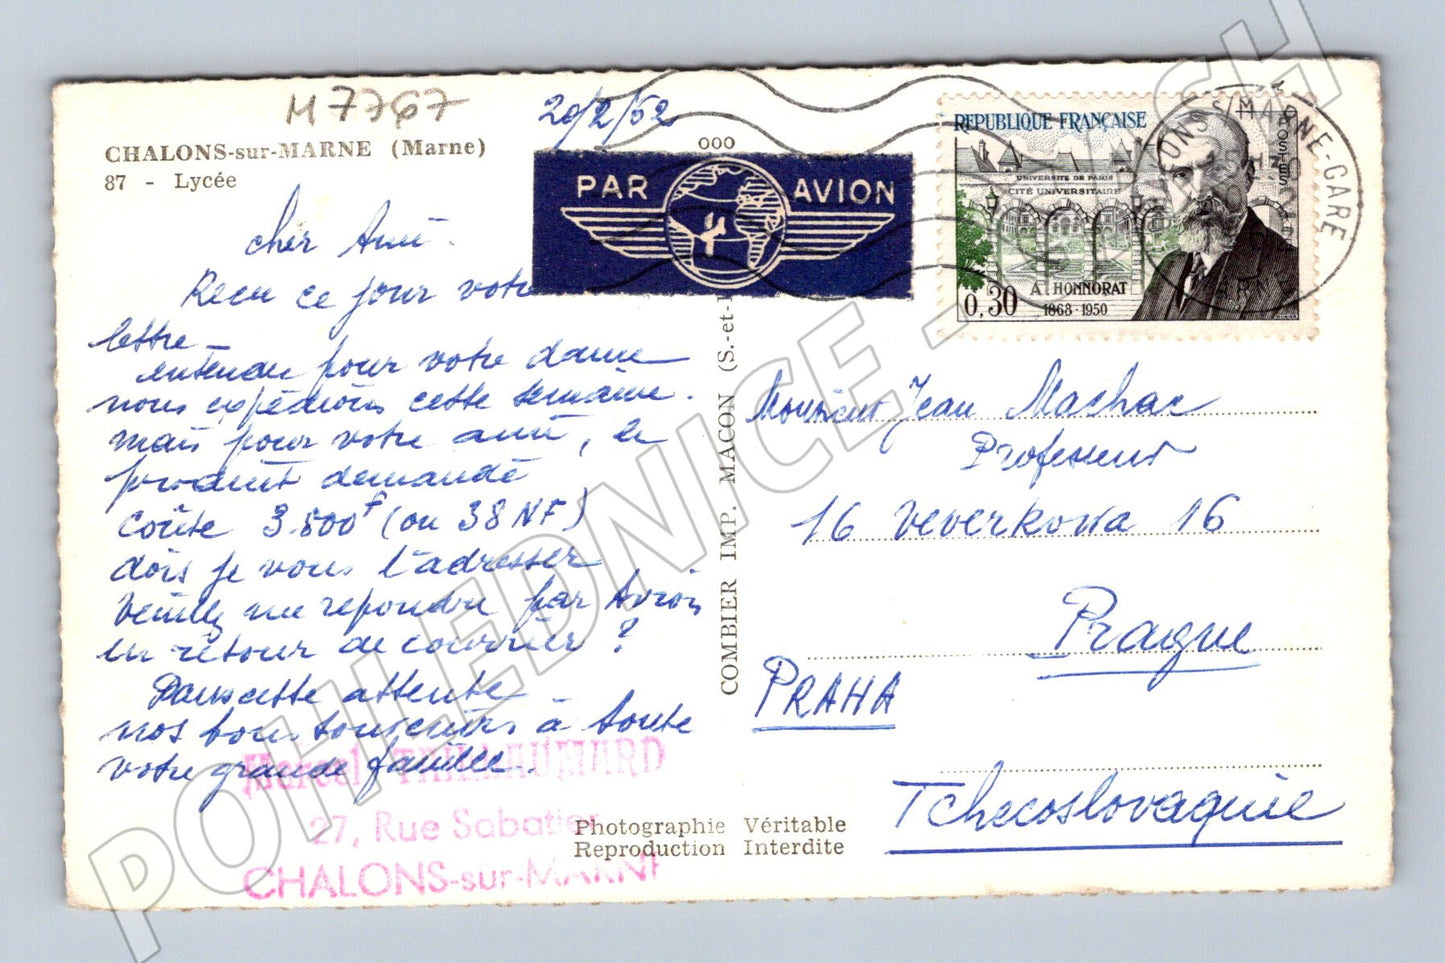 M 7767
20/2/62
CHALONS-sur-MARNE (Marne)
87 - Lycée
000
PAR AVION
REPUBLIQUE FRANÇAISE
POSTES
UNIVERSITÉ DE PARIS
CITÉ UNIVERSITAIRE
A. HONNORAT
0,30
1868-1950
S/MARNE-GARE
MARNE
cher Ami.
Recu ce jour votre
lettre_
entendu pour votre dame
nous expédions cette semaine.
mais pour votre ami, le
produit demandé
coûte 3.800f (ou 38 NF)
dois je vous l'adresser
Veuillez me repondre par Avion
en retour de courrier ?
Dans cette attente
nos bons souvenirs à toute
votre grande famille.
Marcel TAILLAUMARD
27, Rue Sabatier
CHALONS-sur-MARNE
COMBIER IMP. MACON (S.-et-
Monsieur Jean Machac
Professeur
16 Veverkova 16
Prague
PRAHA
Tchecoslovaquie
Photographie Véritable
Reproduction Interdite
POHLEDNICE -